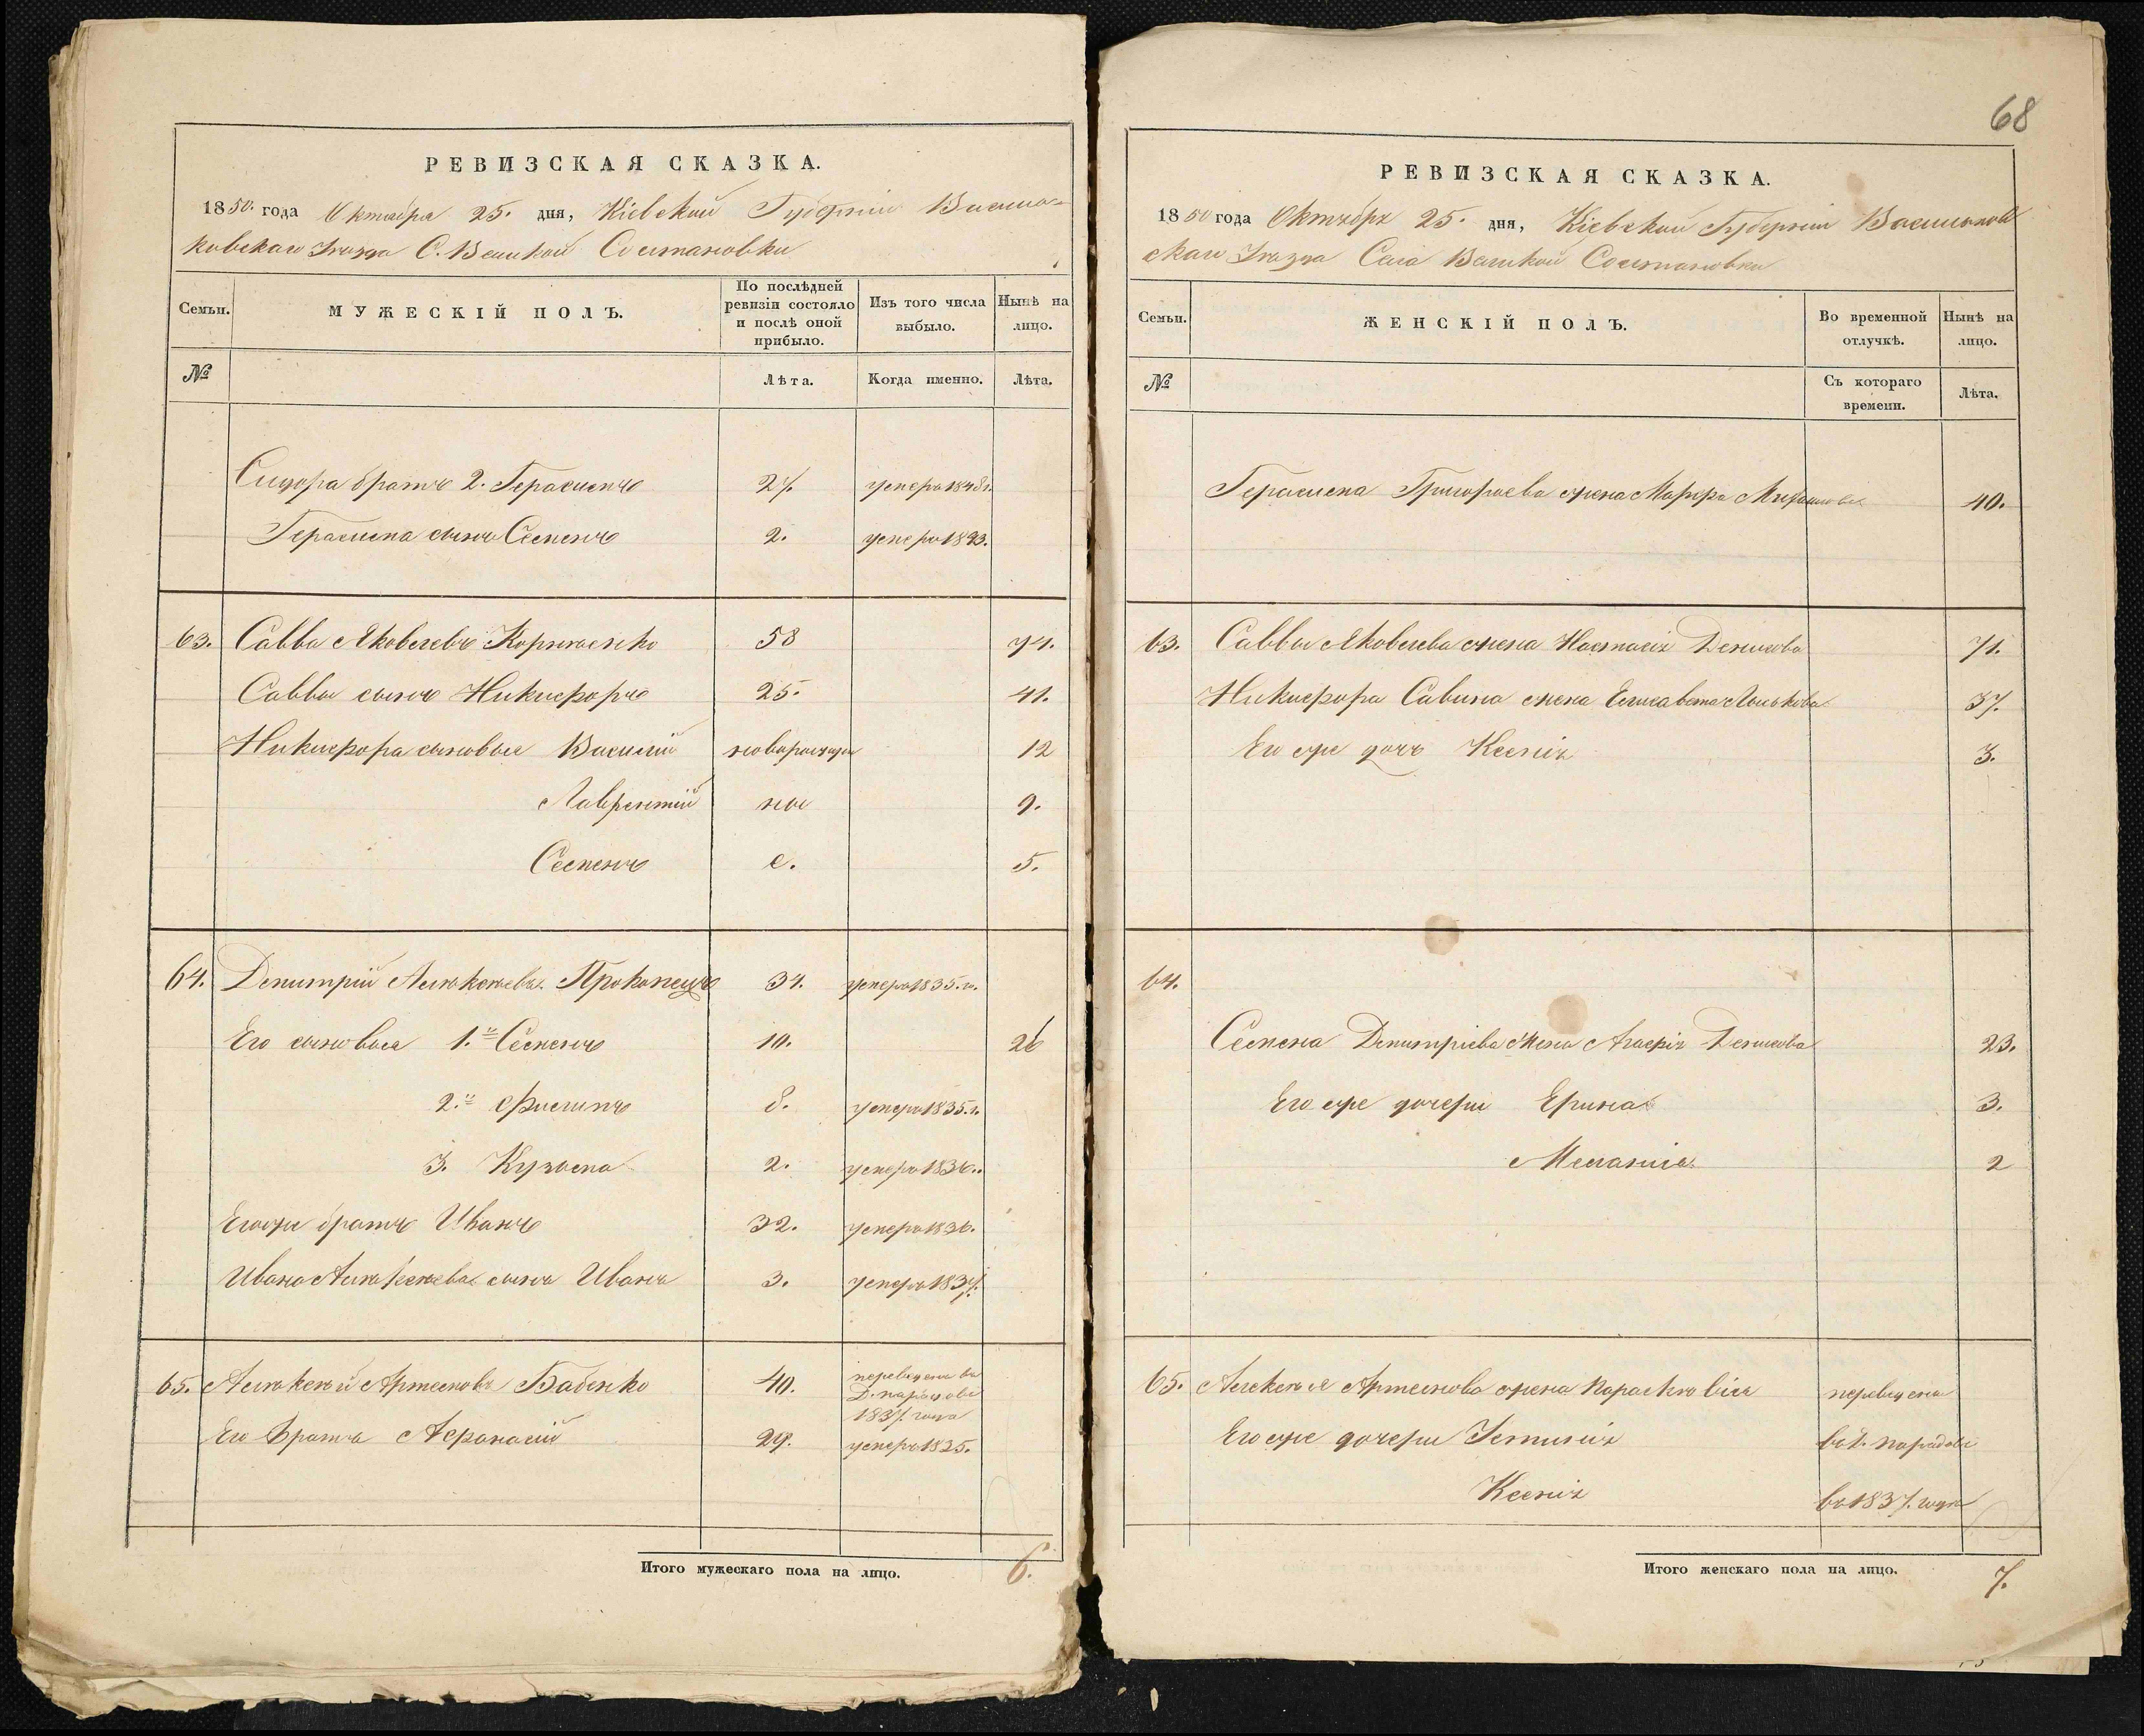 РЕВИЗСКАЯ СКАЗКА.
1850. года Октября 25. дня, Кіевской Губерніи Василь-
ковскаго Уезда С. Великой Солтановки
Семьи.
МУЖЕСКІЙ ПОЛЪ.
По послѣдней ревизіи состояло и послѣ оной прибыло.
Изъ того числа выбыло.
Нынѣ на лицо.
№
Лѣта.
Когда именно.
Лѣта.
Сидора братъ 2. Герасимъ 27. умеръ 1848 г.
Герасима сынъ Семенъ 2. умеръ
63. Савва Яковлевъ Корніенко 58 74.
Саввы сынъ Никифоръ 25. 41.
Никифора сыновья Василій новорожден 12
Лаврентій ны 9.
Семенъ е. 5.
64. Димитрій Алексѣевъ Прокопецъ 34. умеръ 1835. г.
Его сыновья 1.й Семенъ 10. 26
2.й Филипъ 8. умеръ 1835. г.
3. Кузьма 2. умеръ 1836.
Егоже братъ Иванъ 32. умеръ 1836.
Ивана Алексѣева сынъ Иванъ 3. умеръ 1837.
65. Алексѣй Артемовъ Бабенко 40. переведенъ въ
1837. года
Его Братъ Афанасій 29. умеръ 1835.
Итого мужескаго пола на лицо. 6.
68
РЕВИЗСКАЯ СКАЗКА.
1850 года Октября 25. дня, Кіевской Губерніи Васильков
скаго Уезда Села Великой Солтановки
Семьи.
ЖЕНСКІЙ ПОЛЪ.
Во временной отлучкѣ.
Нынѣ на лицо.
№
Съ котораго времени.
Лѣта.
Герасима Григорьева жена Марфа 40.
63. Саввы Яковлева жена Настасія Денисова 71.
Никифора Савина жена Елисавета 37.
Его же дочь Ксенія 3.
64.
Семена Димитріева жена Агафія Денисова 23.
Его же дочери Ерина 3.
Меланія 2
65. Алексея Артемова жена Парасковія переведена
Его же дочери Устинія
Ксенія въ 1837. году
Итого женскаго пола на лицо. 7.